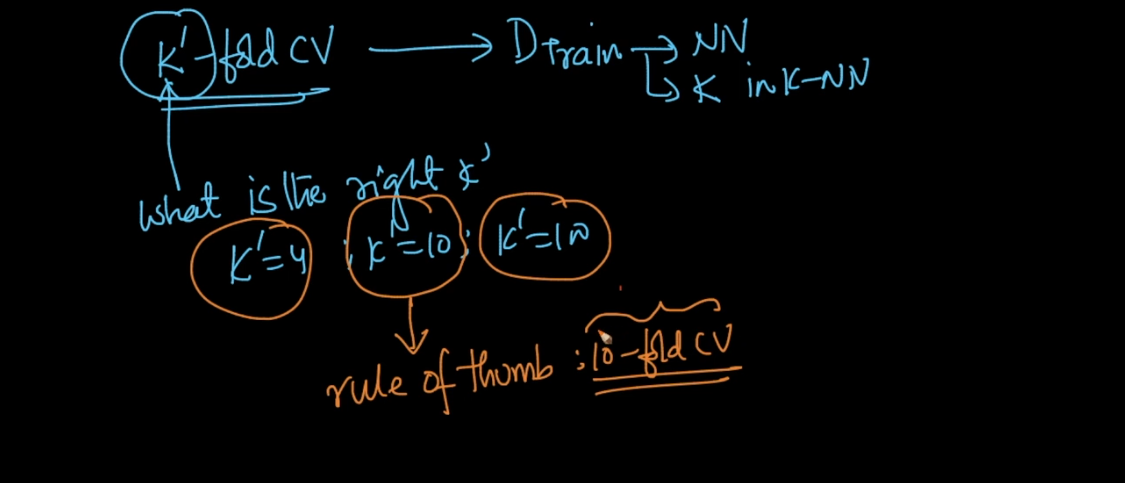 K'-fold CV → Dtrain → NN
↳ K in K-NN
what is the right k'
K'=4 ; K'=10 ; K'=100
rule of thumb : 10-fold CV